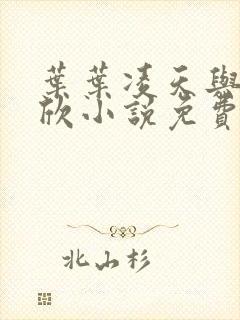 葉葉凌天與
欣小說免費
北山杉